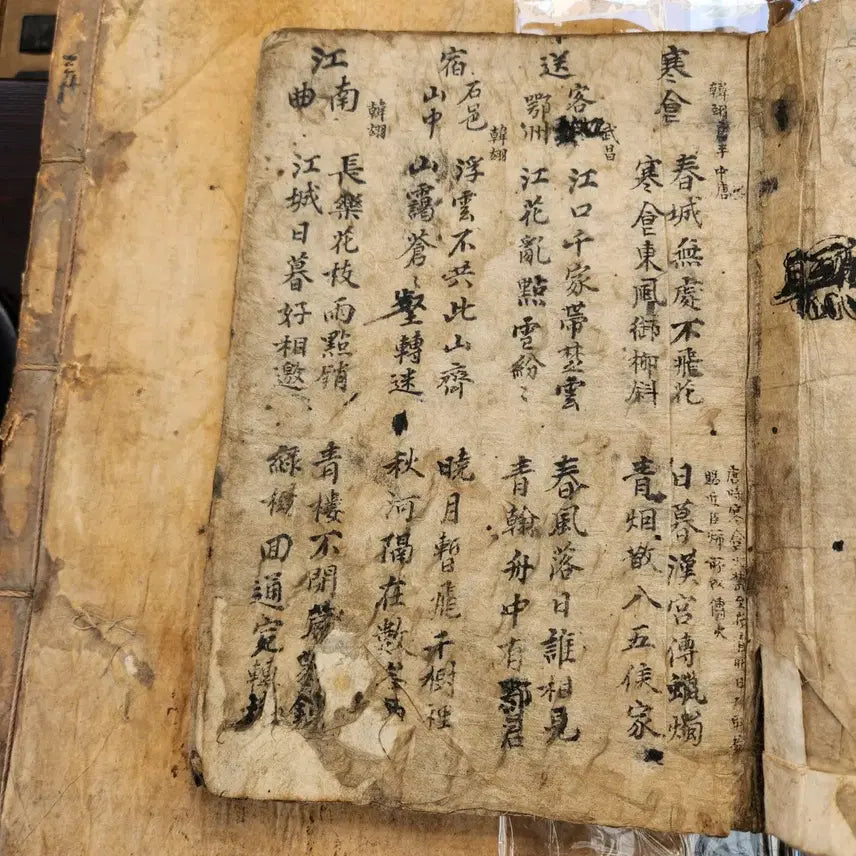 寒食
韓翃
中唐
春城無處不飛花 日暮漢宮傳蠟燭
寒食東風御柳斜 青烟散入五侯家
送客鄂州
武昌
韓翃
江口千家帶楚雲 春風落日誰相見
江花亂點雪紛〻 青翰舟中有鄂君
宿石邑山中
韓翃
浮雲不共此山齊 曉月暫飛千樹裡
山靄蒼〻望轉迷 秋河隔在數峯
江南曲
長樂花枝雨點銷 青樓不閉葳
江城日暮好相邀 綠 回通宛轉